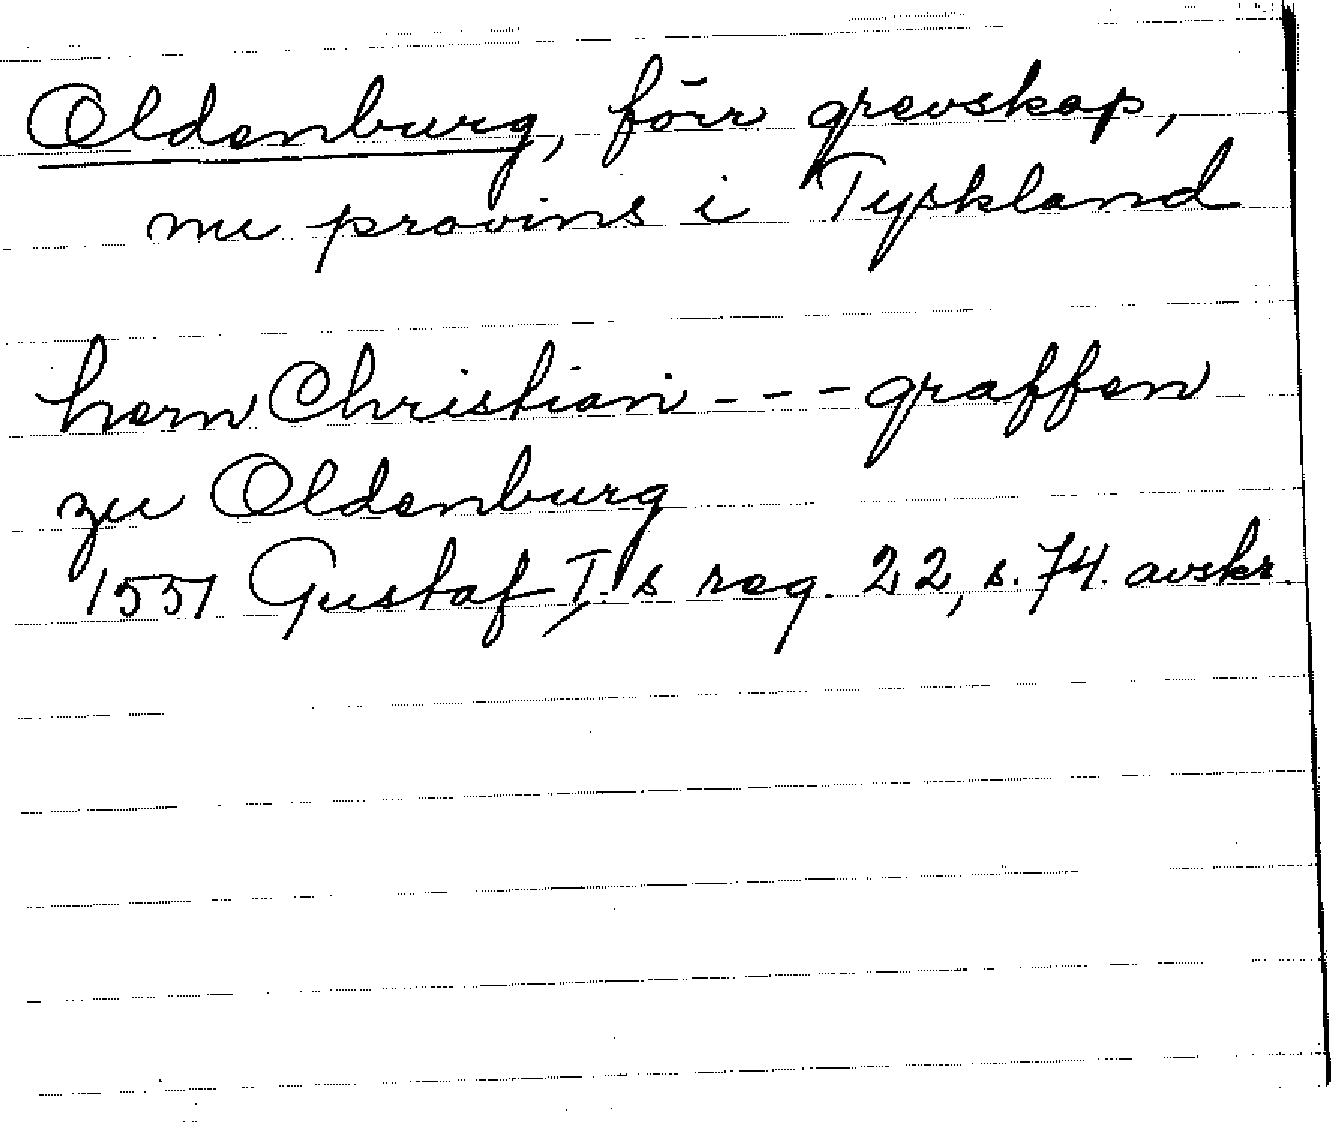 Oldenburg, förr grevskap,
nu provins i Tyskland
hern Christian - - - graffen
zu Oldenburg
1551 Gustaf I:s reg. 22, s. 74. avskr.